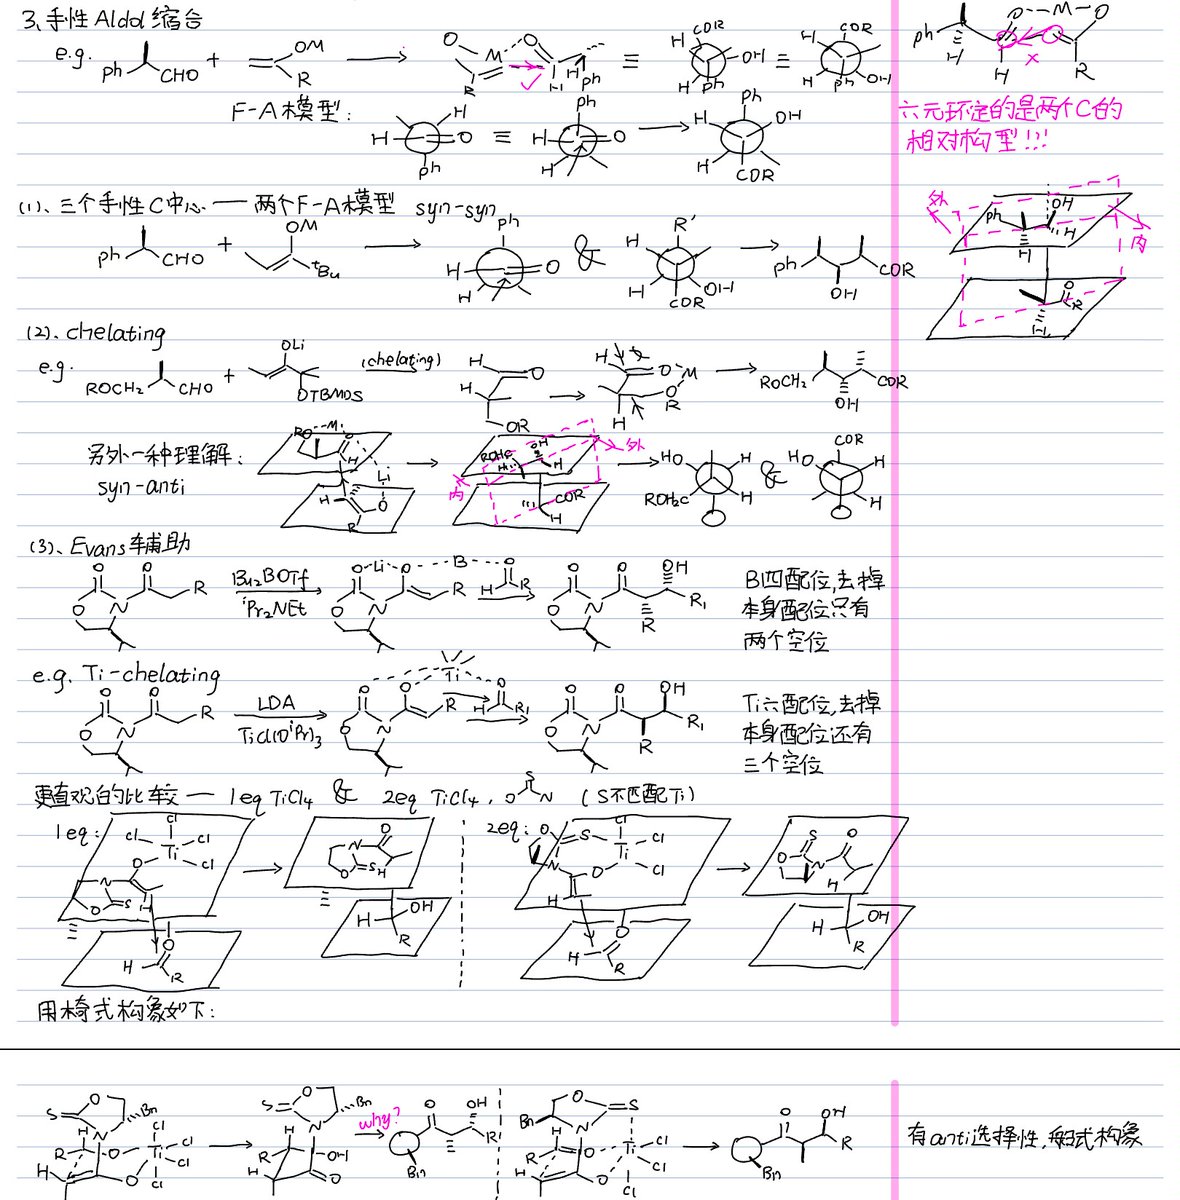 3、手性 Aldol 缩合
e.g. Ph CHO + OM R
M O R H Ph ✓ ≡ COR H OH H Ph ≡ COR H H Ph OH
Ph H H O---M---O R X
F-A 模型:
H H O Ph ≡ Ph H O H
Ph H OH H COR
六元环定的是两个C的
相对构型!!!
(1)、三个手性C中心 — 两个F-A模型 syn-syn
Ph CHO + OM tBu
Ph H O H & R' H H OH COR
Ph OH COR
外 Ph OH H H 内
O R H
(2)、chelating
e.g. ROCH2 CHO + OLi OTBMOS (chelating)
H O OR
H O M O R H
ROCH2 OH COR
另外一种理解:
syn-anti
RO--M O H Li H O R
ROH2C OH H H 外 内 COR H
HO H ROH2C H & COR HO H H
(3)、Evans 辅助
O O O N R
Bu2BOTf
iPr2NEt
O--Li--O---B---O O N R H R
O O OH O N R R1
B四配位,去掉
本身配位只有
两个空位
e.g. Ti-chelating
O O O N R
LDA
TiCl(OiPr)3
O O Ti O O N R H R1
O O OH O N R R1
Ti六配位,去掉
本身配位还有
三个空位
更直观的比较 — 1eq TiCl4 & 2eq TiCl4, O S N (S不匹配Ti)
1eq: Cl Cl Cl Ti Cl O N O S H O H R
N O O S H H OH R
2eq: O S Cl Ti Cl Cl N O H O H R
S O O N H H OH R
用椅式构象如下:
S O Bn N H R O Ti Cl Cl Cl Cl H O
S O Bn N H R OH H O
why?
O OH R Bn
O S Bn N H R O Ti Cl Cl Cl H O
O OH R Bn
有anti选择性,船式构象